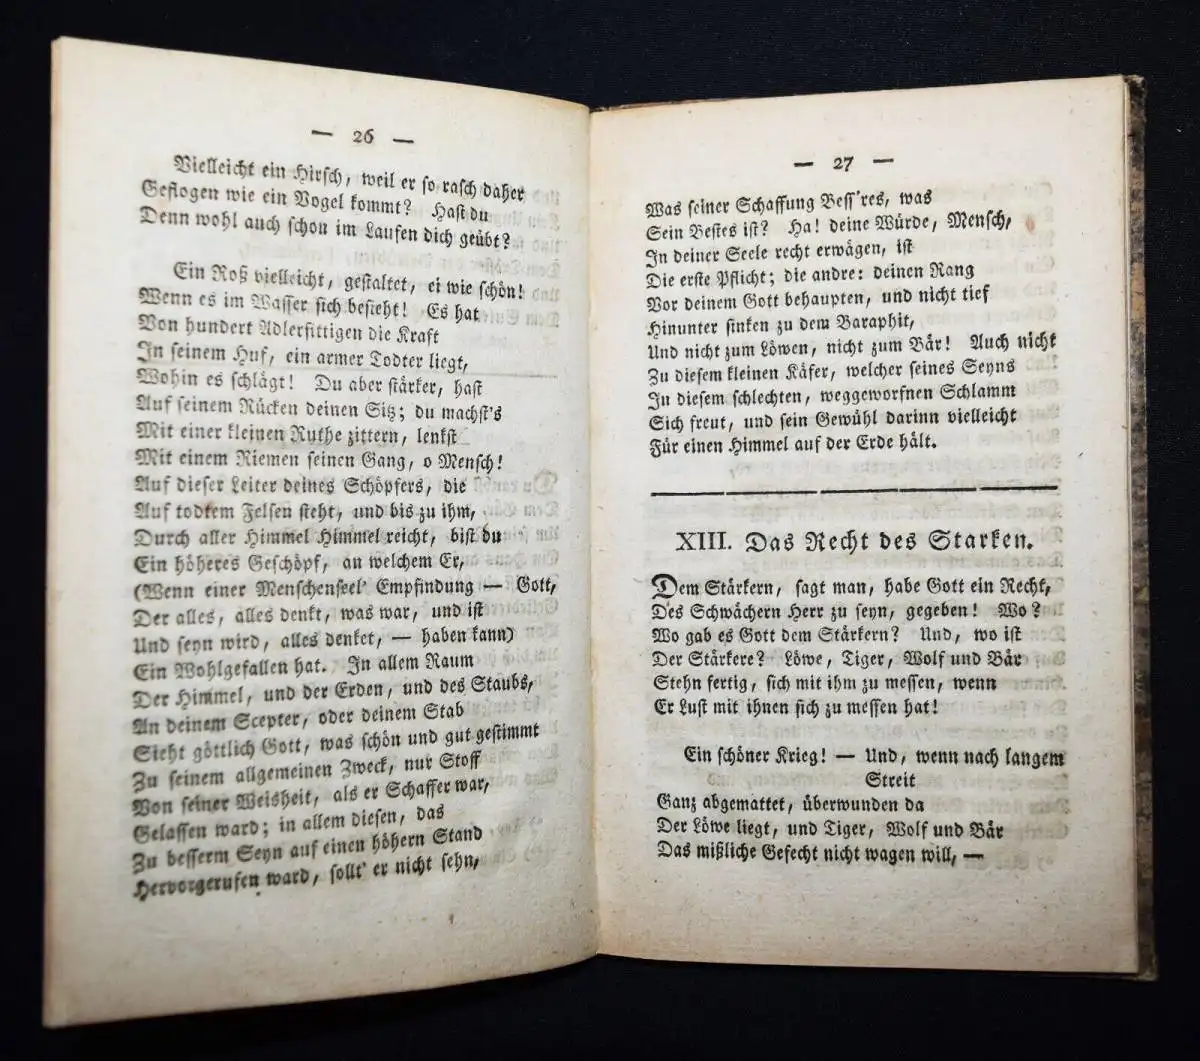 — 26 —
Vielleicht ein Hirsch, weil er so rasch daher
Geflogen wie ein Vogel kommt? Hast du
Denn wohl auch schon im Laufen dich geübt?
Ein Roß vielleicht, gestaltet, ei wie schön!
Wenn es im Wasser sich besieht! Es hat
Von hundert Adlerfittigen die Kraft
In seinem Huf, ein armer Todter liegt,
Wohin es schlägt! Du aber stärker, hast
Auf seinem Rücken deinen Sitz; du machst's
Mit einer kleinen Ruthe zittern, lenkst
Mit einem Riemen seinen Gang, o Mensch!
Auf dieser Leiter deines Schöpfers, die
Auf todtem Felsen steht, und bis zu ihm,
Durch aller Himmel Himmel reicht, bist du
Ein höheres Geschöpf, an welchem Er,
(Wenn einer Menschenseel' Empfindung — Gott,
Der alles, alles denkt, was war, und ist
Und seyn wird, alles denket, — haben kann)
Ein Wohlgefallen hat. In allem Raum
Der Himmel, und der Erden, und des Staubs,
An deinem Scepter, oder deinem Stab
Sieht göttlich Gott, was schön und gut gestimmt
Zu seinem allgemeinen Zweck, nur Stoff
Von seiner Weisheit, als er Schaffer war,
Gelassen ward; in allem diesen, das
Zu besserm Seyn auf einen höhern Stand
Hervorgerufen ward, sollt' er nicht sehn,
— 27 —
Was seiner Schaffung Bess'res, was
Sein Bestes ist? Ha! deine Würde, Mensch,
In deiner Seele recht erwägen, ist
Die erste Pflicht; die andre: deinen Rang
Vor deinem Gott behaupten, und nicht tief
Hinunter sinken zu dem Baraphit,
Und nicht zum Löwen, nicht zum Bär! Auch nicht
Zu diesem kleinen Käfer, welcher seines Seyns
In diesem schlechten, weggeworfnen Schlamm
Sich freut, und sein Gewühl darinn vielleicht
Für einen Himmel auf der Erde hält.
XIII. Das Recht des Starken.
Dem Stärkern, sagt man, habe Gott ein Recht,
Des Schwächern Herr zu seyn, gegeben! Wo?
Wo gab es Gott dem Stärkern? Und, wo ist
Der Stärkere? Löwe, Tiger, Wolf und Bär
Stehn fertig, sich mit ihm zu messen, wenn
Er Lust mit ihnen sich zu messen hat!
Ein schöner Krieg! — Und, wenn nach langem
Streit
Ganz abgemattet, überwunden da
Der Löwe liegt, und Tiger, Wolf und Bär
Das mißliche Gefecht nicht wagen will, —